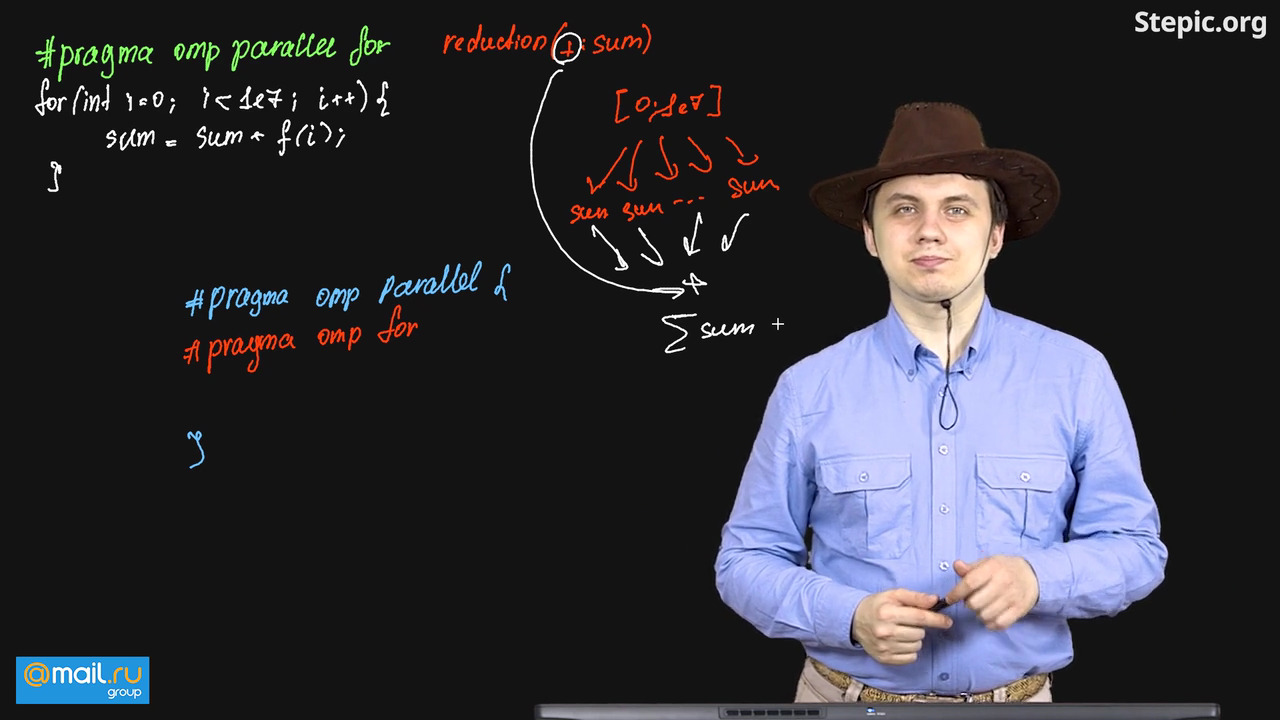 Stepic.org
#pragma omp parallel for reduction(+:sum)
for(int i=0; i<1e7; i++){
sum = sum + f(i);
}
[0;1e7]
sum sum ... sum
+
Σ sum +
#pragma omp parallel {
#pragma omp for
}
@mail.ru
group